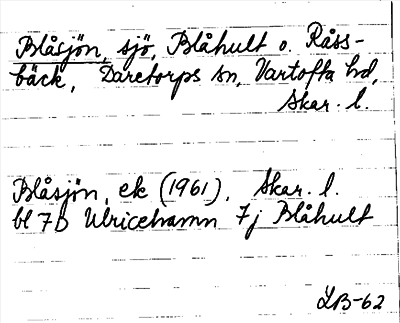 Blåsjön, sjö, Blåhult o. Råss-
bäck, Daretorps sn, Vartofta hd,
Skar. l.
Blåsjön, ek (1961), Skar. l.
bl 7D Ulricehamn 7j Blåhult
LB-62